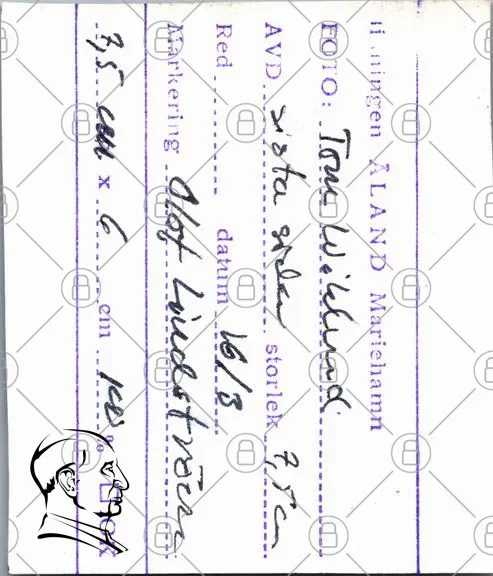 Tidningen ÅLAND Mariehamn
FOTO: Tom Wiklund
AVD. sista sidan storlek 7,5 cm
Red datum 16/3
Markering Olof Lindström
7,5 cm x 6 cm %